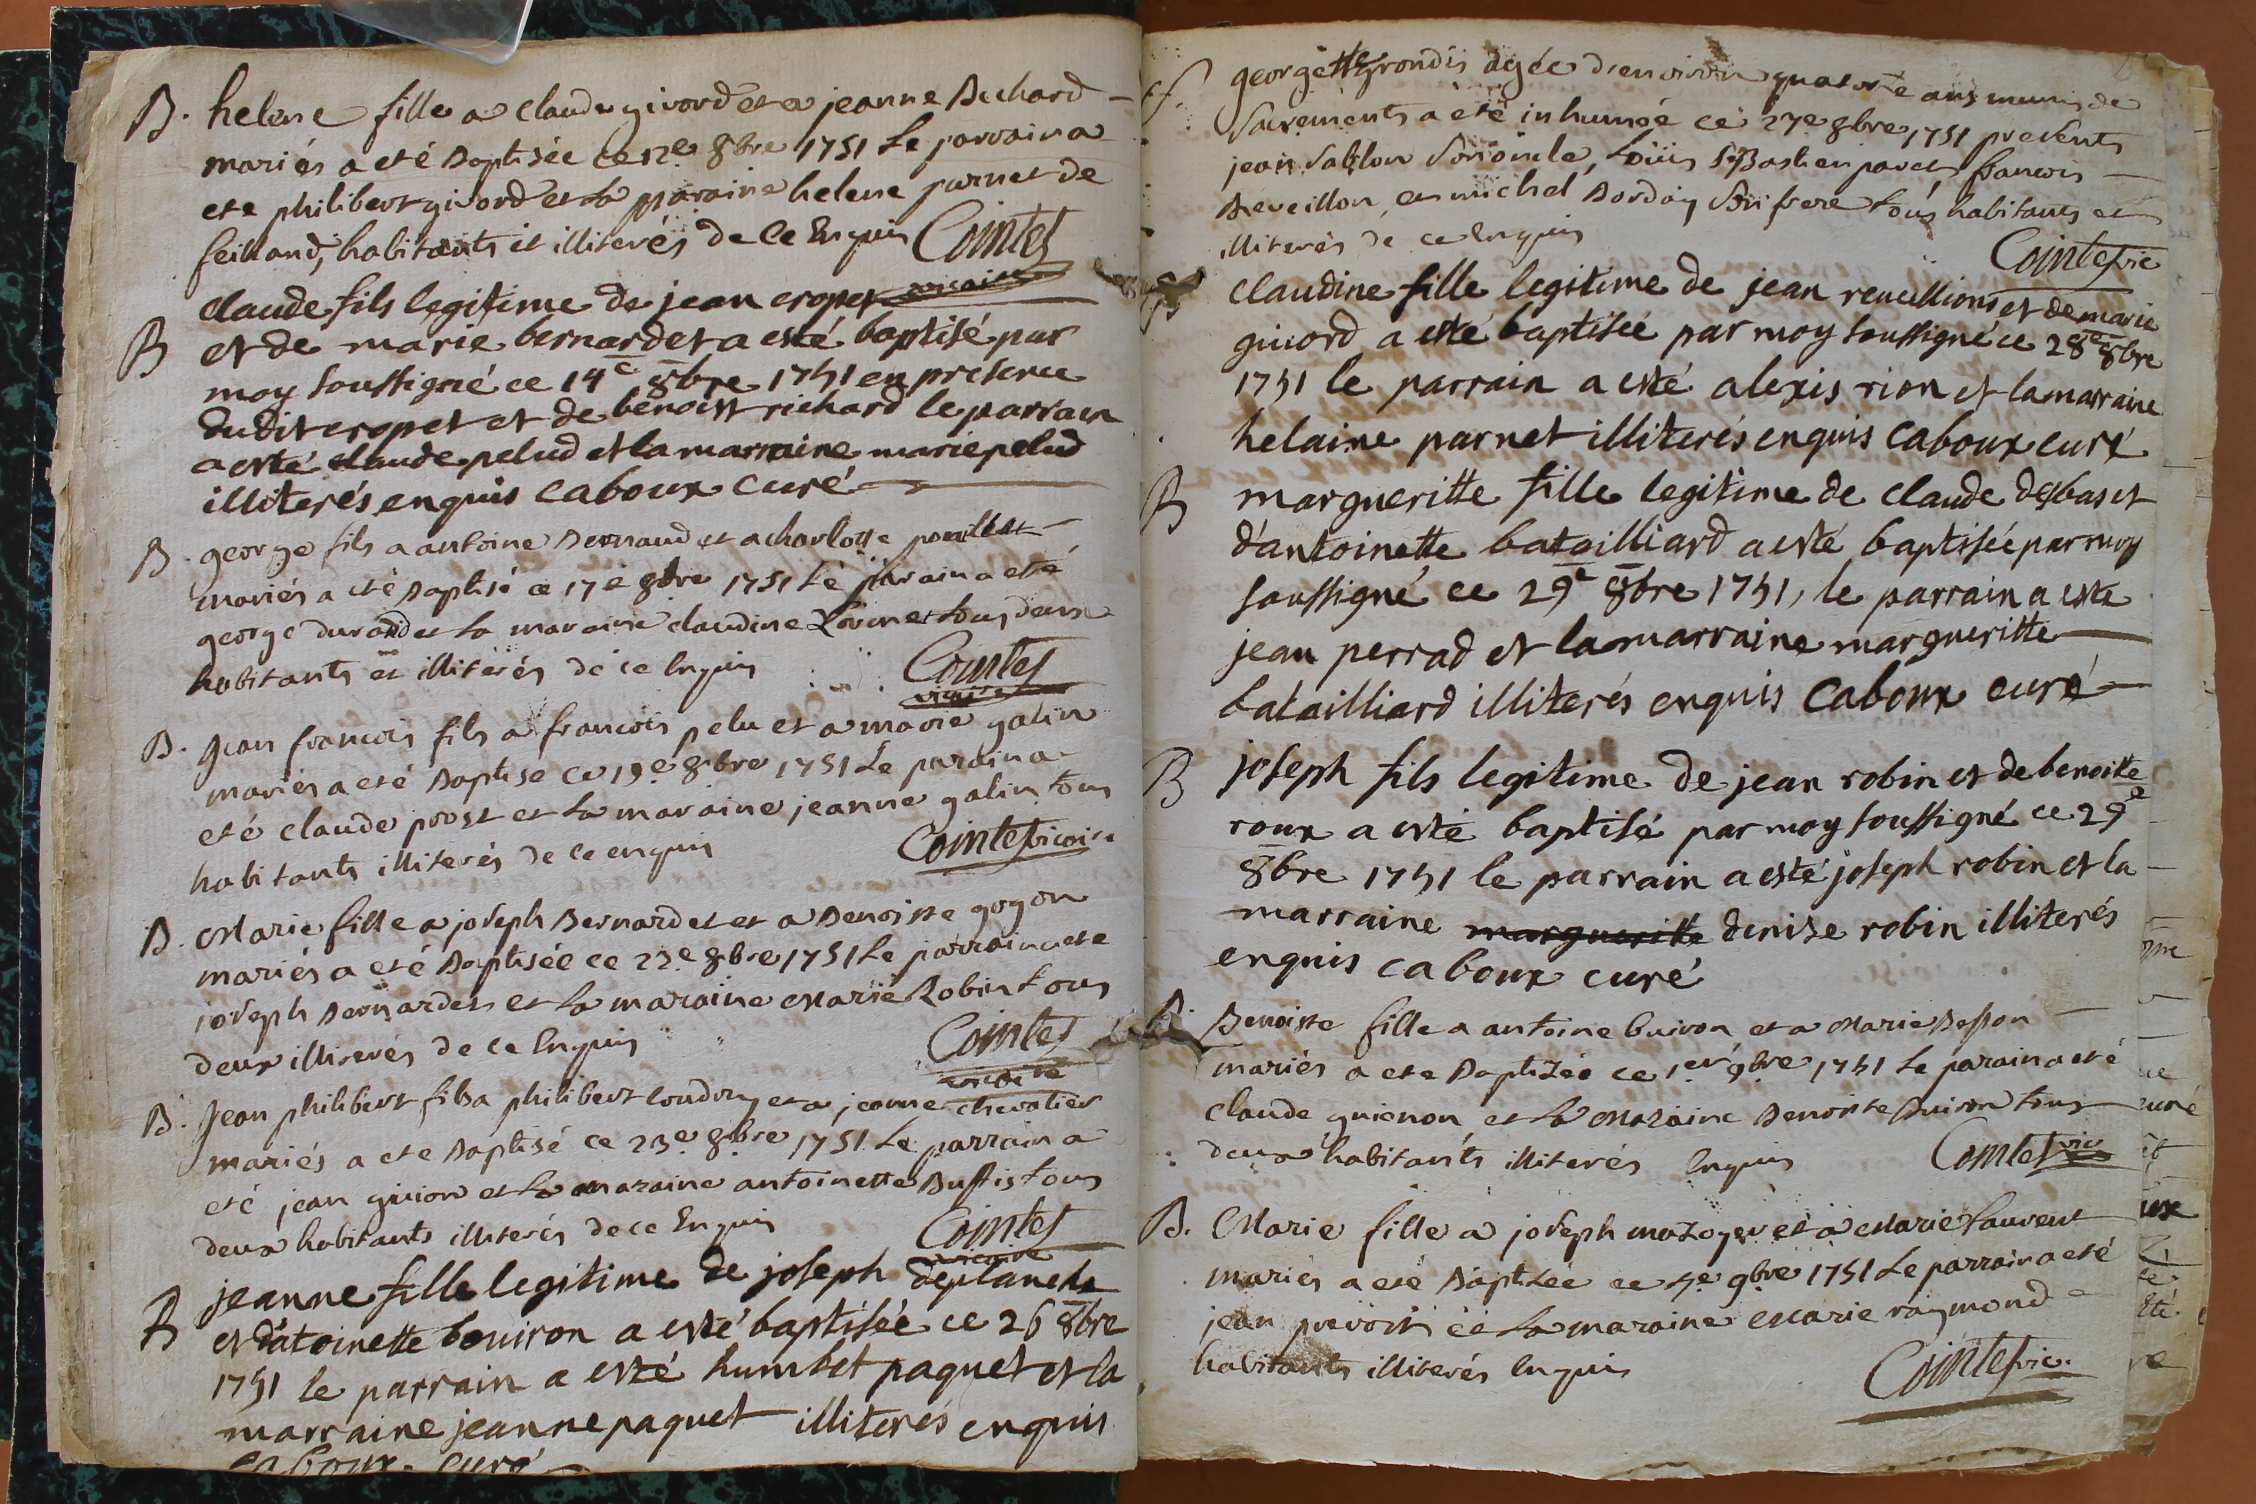 B. helene fille a claude givord et a jeanne Buchard
mariés a eté Baptisée ce 12e 8bre 1751 Le parrain a
ete philibert givord et la maraine helene parnet de
feilland, habitants et illiterés de ce Enquis Cointet
vicaire
claude fils legitime de jean cropet
B et de marie bernardet a esté baptisé par
moy soussigné ce 14e 8bre 1751 en presence
dudit cropet et de benoist richard le parrain
a esté claude pelud et la marraine marie pelud
illiterés enquis caboux curé
B. george fils a antoine Bernaud et a charlotte
mariés a eté Baptisé ce 17e 8bre 1751 Le parain a eté
george durand et la maraine claudine tous deux
habitants et illiterés de ce Enquis Cointet
vicaire
B. Jean francois fils a francois pelu et a marie galin
mariés a eté Baptise ce 19e 8bre 1751 Le parain a
eté claude prost et la maraine jeanne galin tous
habitants illiterés de ce enquis Cointet vicaire
B. Marie fille a joseph Bernardet et a Benoiste gogon
mariés a eté Baptisée ce 23e 8bre 1751 Le parrain a ete
joseph Bernardet et la maraine Marie Robin tous
deux illiterés de ce Enquis Cointet
vicaire
B. Jean philibert fils a philibert coudory et a jeanne chevalier
mariés a ete Baptisé ce 23e 8bre 1751 Le parrain a
eté jean guion et la maraine antoinette Buffis tous
deux habitants illiterés de ce Enquis Cointet
vicaire
jeanne fille legitime de joseph deplanche
B et d'atoinette bouiron a esté baptisée ce 26 8bre
1751 le parrain a esté humbet paquet et la
marraine jeanne paquet illiterés enquis
caboux curé
georgette grondis agée d'environ quatorte ans munis de
Sacrements a été inhumée ce 27e 8bre 1751 presents
jean Sablon Son oncle, Loüis Sebastien paret francois
Reveillon, et michel Bordoy Son frere tous habitants et
illiterés de ce Enquis
Cointet vic
claudine fille legitime de jean reveillions et de marie
givord a esté baptisée par moy soussigné ce 28e 8bre
1751 le parrain a esté alexis rion et la marraine
helaine parnet illiterés enquis caboux curé
B margueritte fille legitime de claude desbas et
d'antoinette batailliard a esté baptisée par moy
soussigné ce 29e 8bre 1751, le parrain a esté
jean perrad et la marraine margueritte
batailliard illiterés enquis caboux curé
B joseph fils legitime de jean robin et de benoitte
roux a esté baptisé par moy soussigné ce 29e
8bre 1751 le parrain a esté joseph robin et la
marraine margueritte denise robin illiterés
enquis caboux curé
B. Benoiste fille a antoine buiron et a Marie Besson
mariés a ete Baptizée ce 1er 9bre 1751 Le parain a eté
claude guienon et la Maraine Benoiste Buiron tous
deux habitants illiterés Enquis Cointet vic
B. Marie fille a joseph mazoyer et a Marie Laurent
mariés a eté Baptisée ce 4e 9bre 1751 Le parrain a eté
jean prevost et la maraine Marie raymond
habitants illiterés Enquis
Cointet vic.